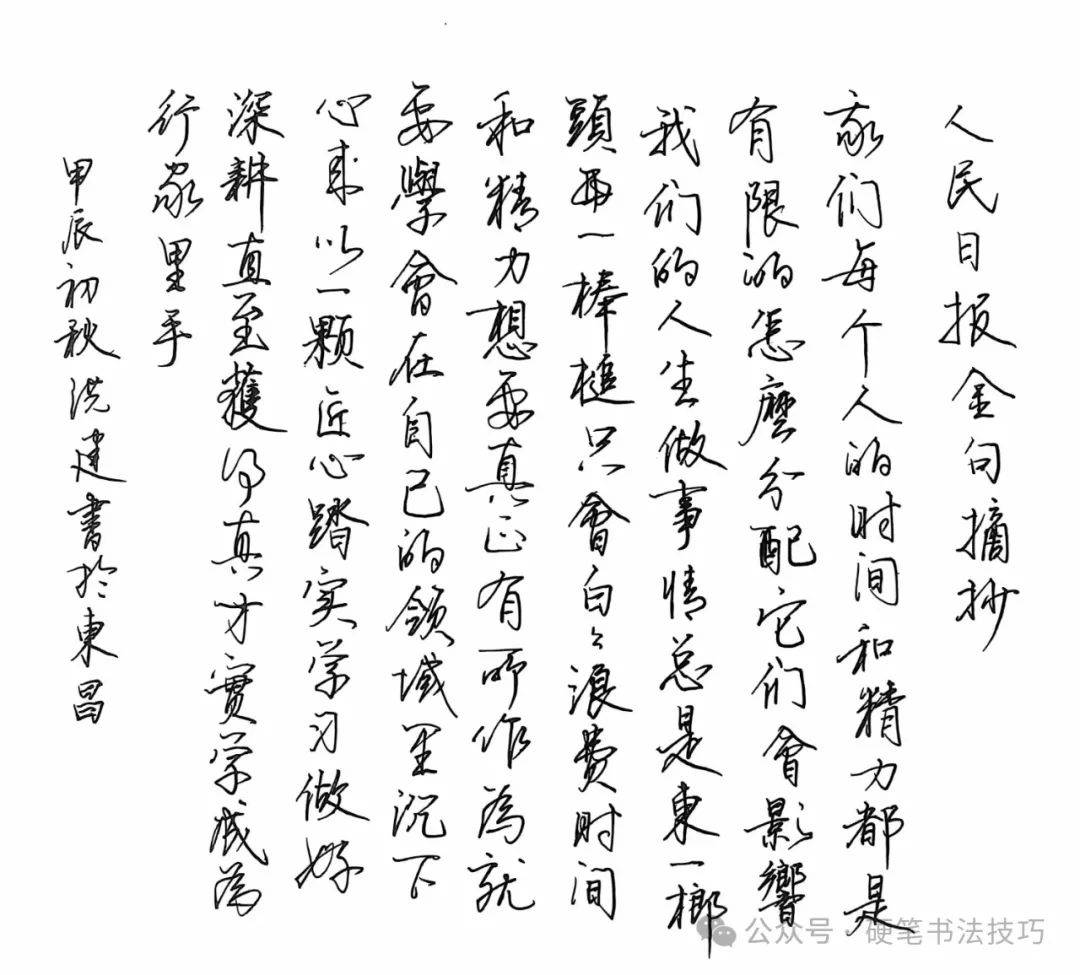 人民日报金句摘抄
我们每个人的时间和精力都是
有限的怎麼分配它们會影響
我们的人生做事情总是東一榔
頭西一棒槌只會白々浪費时间
和精力想要真正有所作為就
要學會在自己的领域里沉下
心来以一颗匠心踏实学习做好
深耕直至獲得真才實学成為
行家里手
甲辰初秋洪建書於東昌
公众号 · 硬笔书法技巧